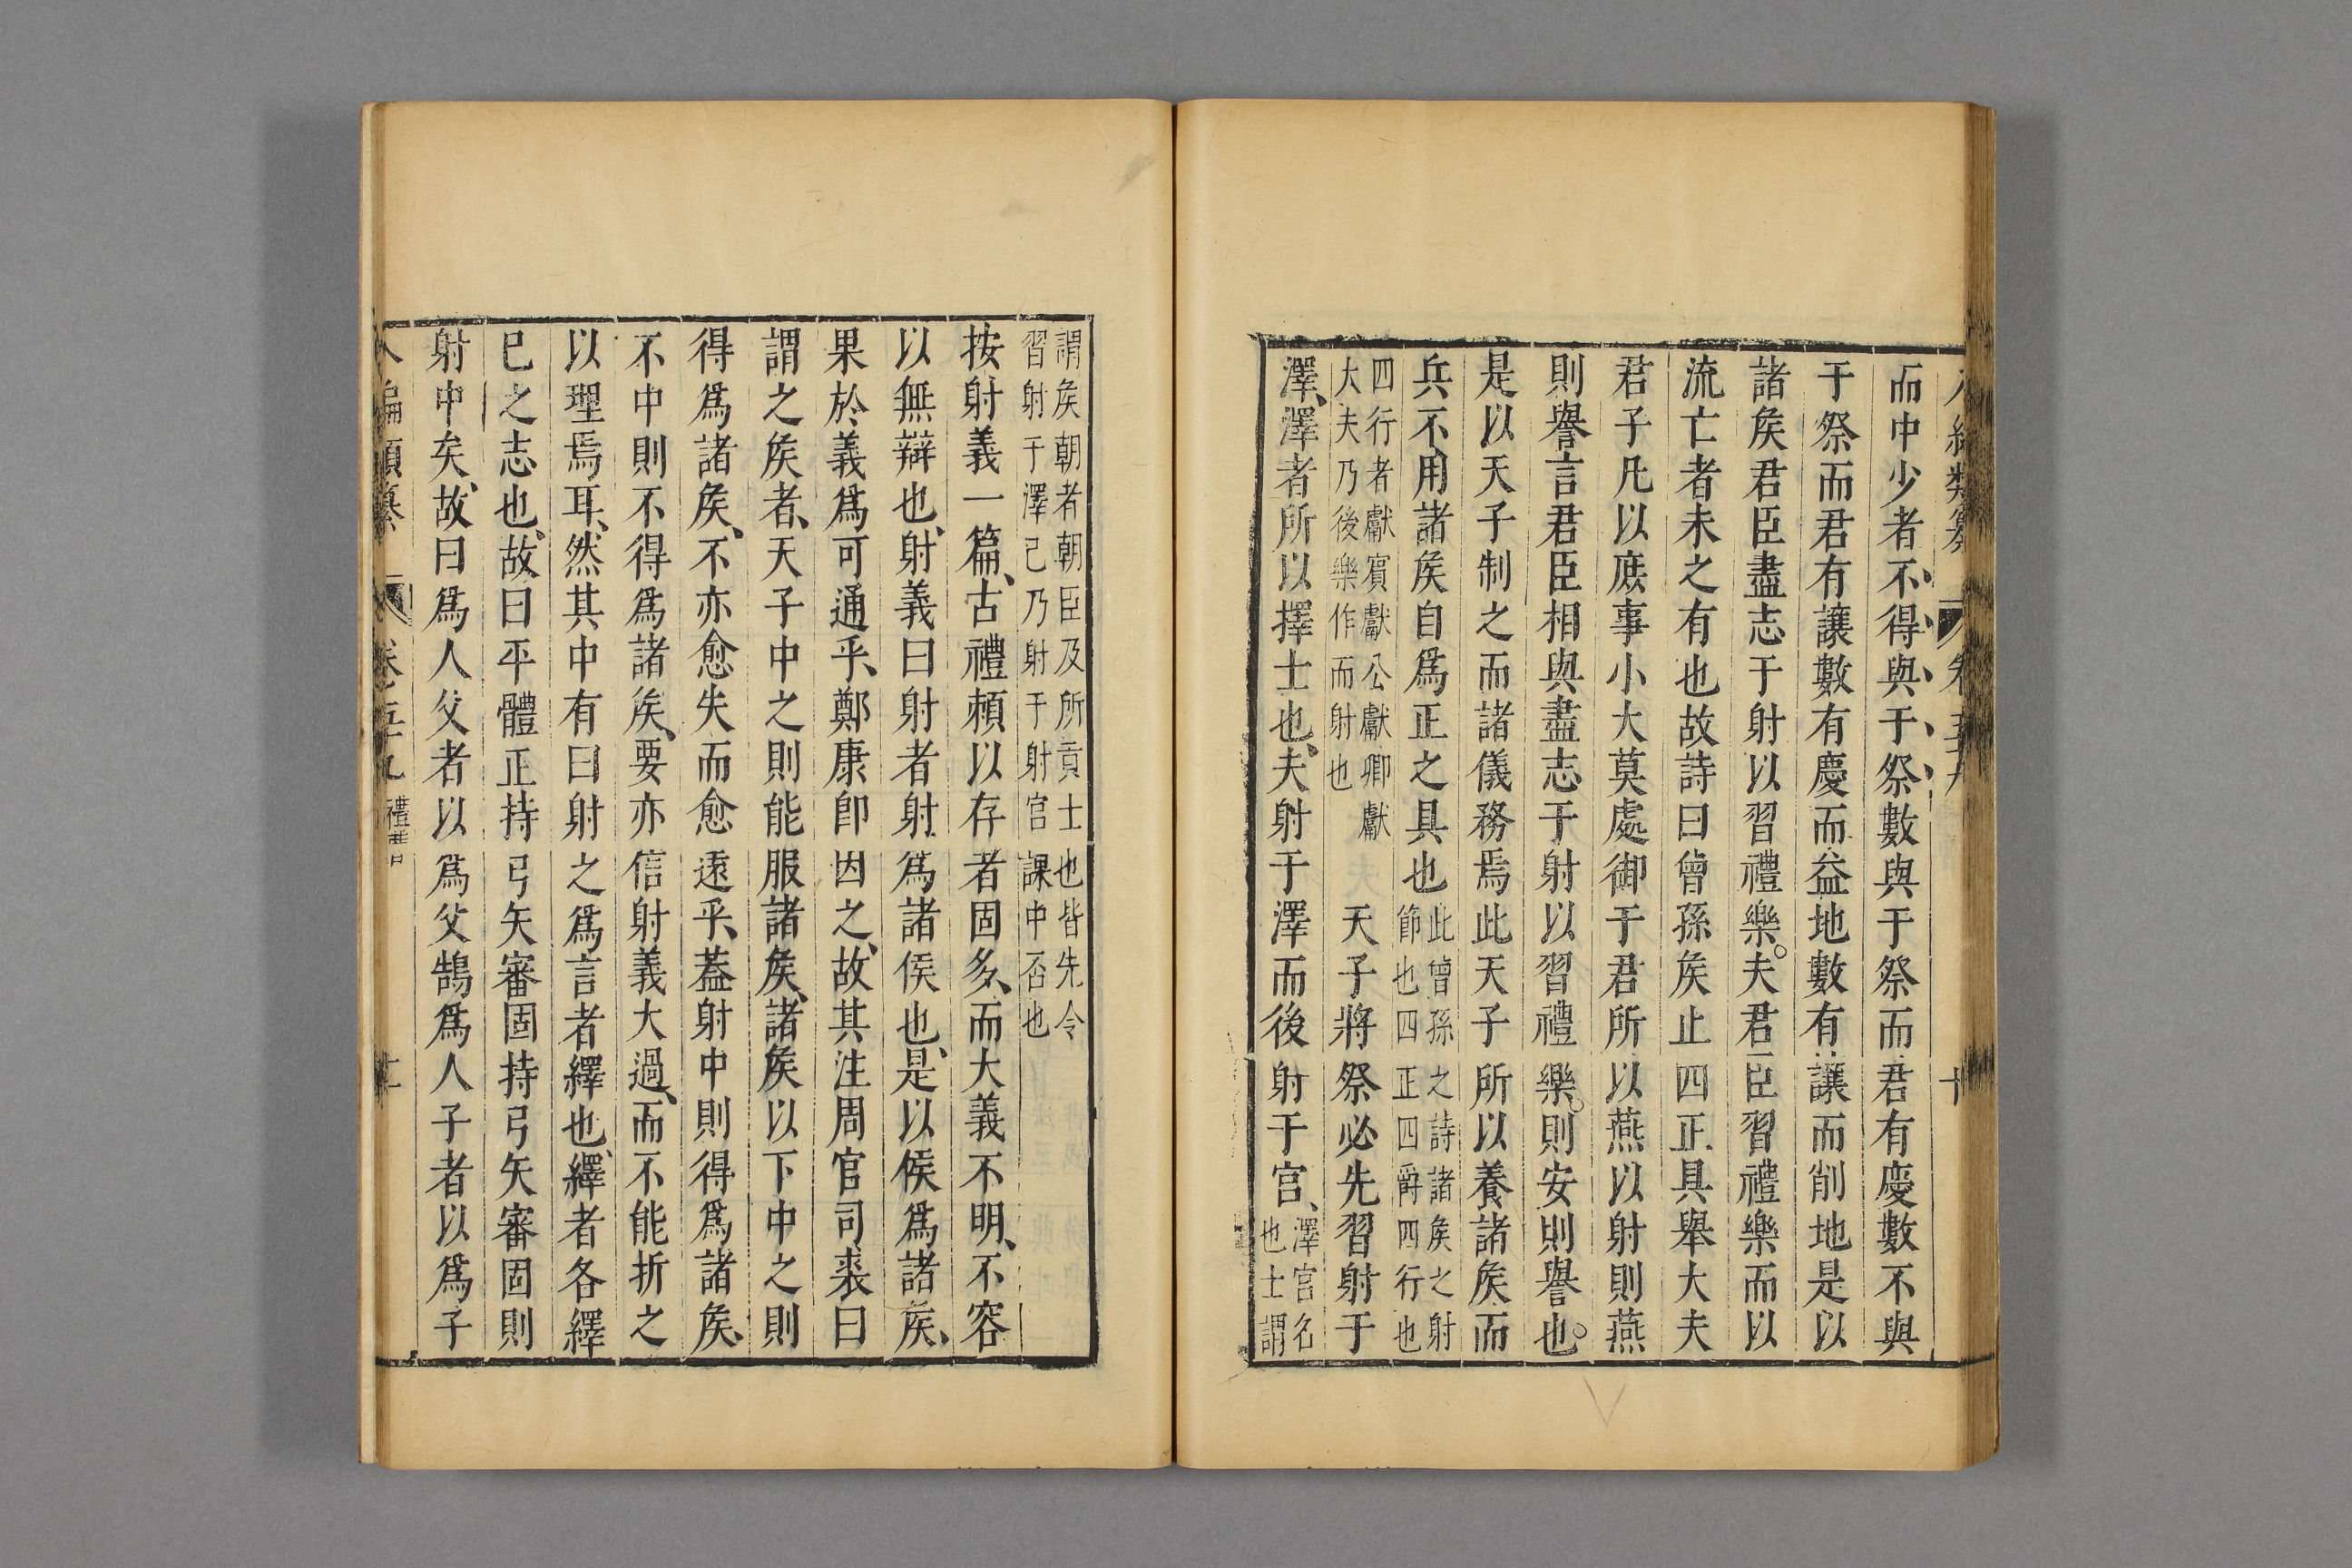 而中少者不得與于祭數與于祭而君有慶數不與
于祭而君有讓數有慶而益地數有讓而削地是以
諸矦君臣盡志于射以習禮樂夫君臣習禮樂而以
流亡者未之有也故詩曰曾孫矦止四正具舉大夫
君子凡以庶事小大莫處御于君所以燕以射則燕
則譽言君臣相與盡志于射以習禮樂則安則譽也
是以天子制之而諸儀務焉此天子所以養諸矦而
兵不用諸矦自爲正之具也此曾孫之詩諸矦之射
節也四正四爵四行也
四行者獻賓獻公獻卿獻
大夫乃後樂作而射也
天子將祭必先習射于
澤、澤者所以擇士也、夫射于澤而後射于宮、澤宮名
也士謂
謂矦朝者朝臣及所貢士也皆先令
習射于澤已乃射于射宮課中否也
按射義一篇、古禮賴以存者固多、而大義不明、不容
以無辯也、射義曰射者射爲諸侯也、是以矦爲諸矦、
果於義爲可通乎、鄭康卽因之、故其注周官司裘曰
謂之矦者、天子中之則能服諸矦、諸矦以下中之則
得爲諸矦、不亦愈失而愈遠乎、葢射中則得爲諸矦、
不中則不得爲諸矦、要亦信射義大過、而不能折之
以理焉耳、然其中有曰射之爲言者繹也、繹者各繹
已之志也、故曰平體正持弓矢審固持弓矢審固則
射中矣、故曰爲人父者以爲父鵠爲人子者以爲子
八編類纂 卷五九 禮